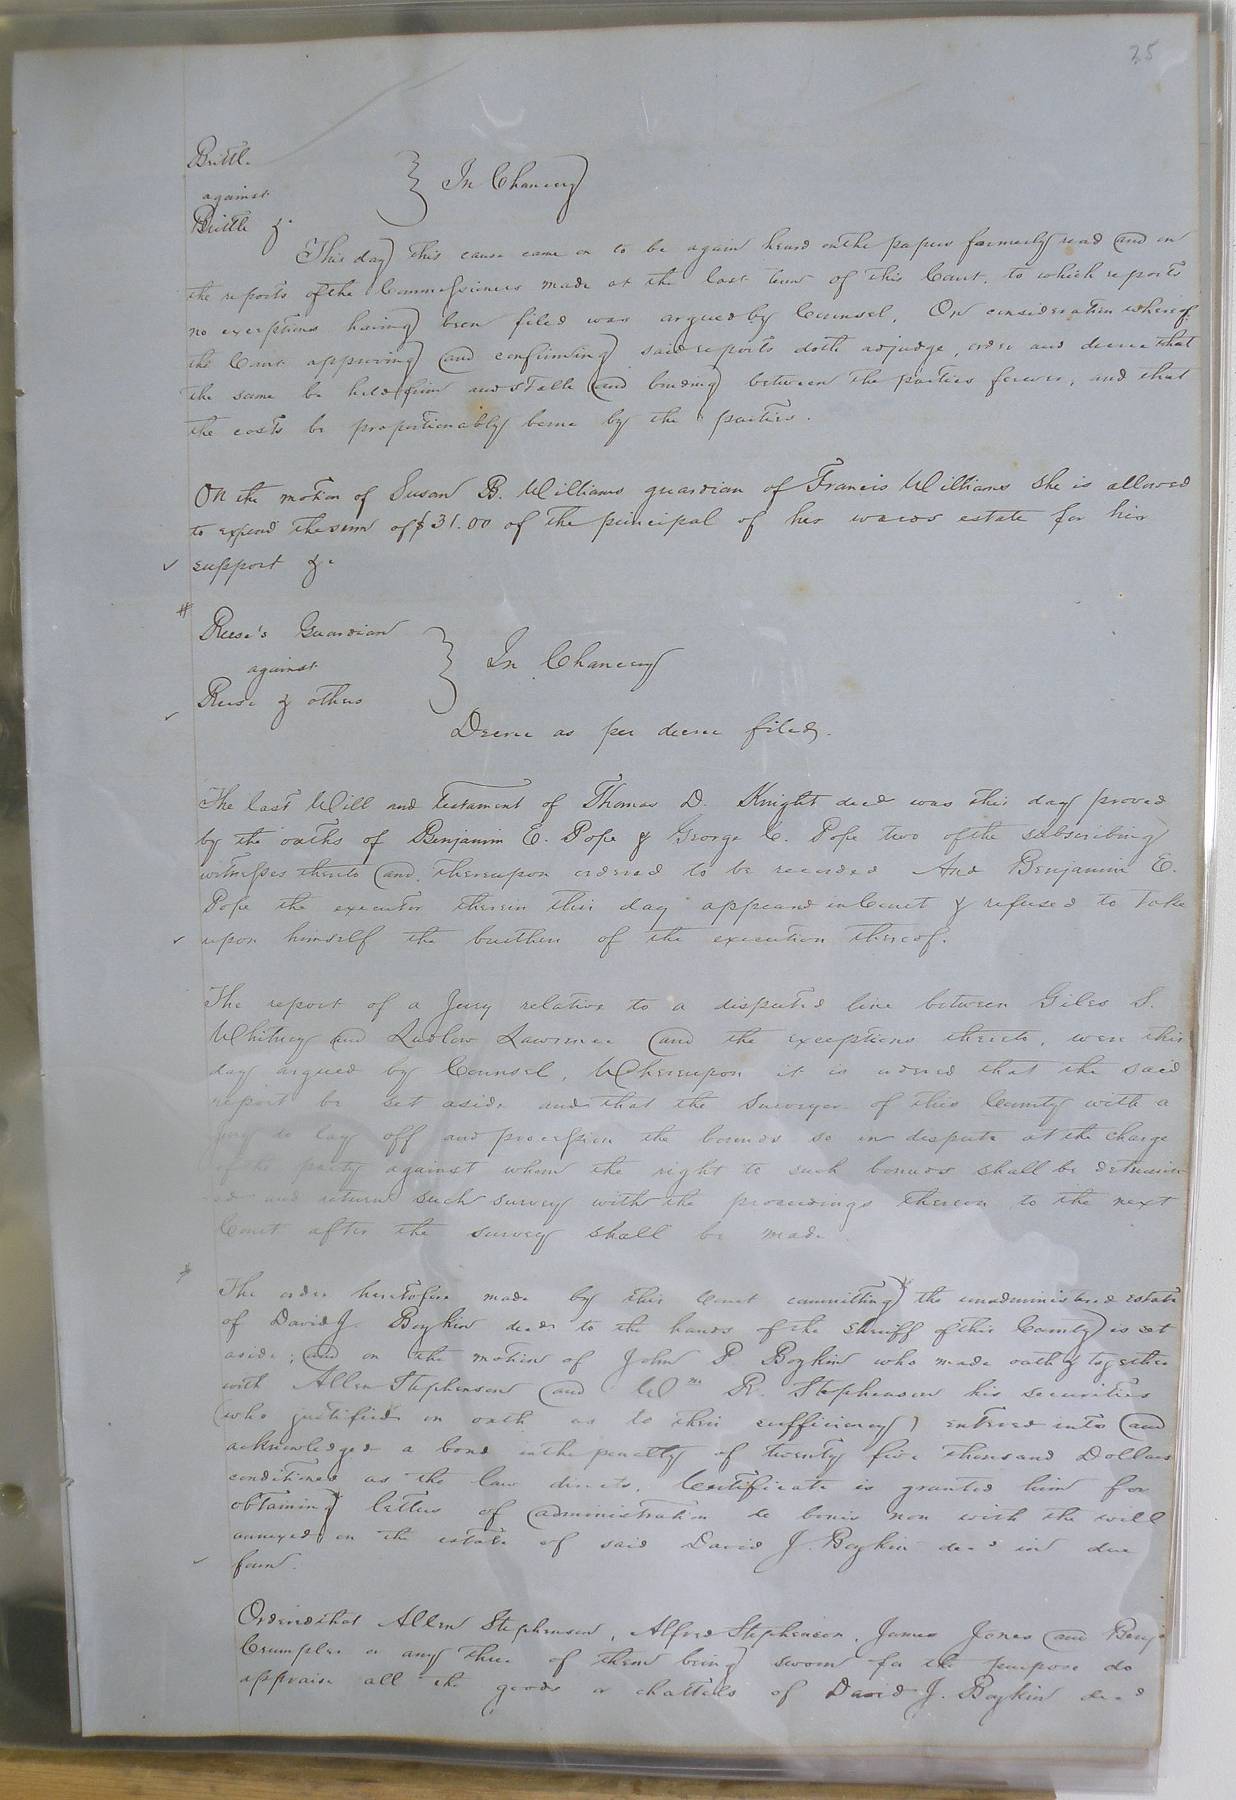 25
Brittle
against
Brittle &c
In Chancery
This day this cause came on to be again heard on the papers formerly read and on
the reports of the Commissioners made at the last term of this Court, to which reports
no exceptions having been filed was argued by Counsel. On consideration whereof
the Court approving and confirming said reports doth adjudge, order and decree that
the same be held firm and stable and binding between the parties forever, and that
the costs be proportionably borne by the parties.
On the motion of Susan B. Williams guardian of Francis Williams she is allowed
to expend the sum of $31.00 of the principal of her wards estate for his
support &c
Reese's Guardian
against
Reese & others
In Chancery
Decree as per decree filed.
The last Will and testament of Thomas D. Knight decd was this day proved
by the oaths of Benjamin E. Pope & George C. Pope two of the subscribing
witnesses thereto and thereupon ordered to be recorded And Benjamin E.
Pope the executor therein this day appeared in Court & refused to take
upon himself the burthen of the execution thereof.
The report of a Jury relative to a disputed line between Giles S.
Whitney and Ludlow Lawrence and the exceptions thereto, were this
day argued by Counsel, Whereupon it is ordered that the said
report be set aside and that the Surveyor of this County with a
jury do lay off and procession the bounds so in dispute at the charge
of the party against whom the right to such bounds shall be determin
ed and return such survey with the proceedings thereon to the next
Court after the survey shall be made.
The order heretofore made by this Court committing the unadministered estate
of David J. Boykin decd to the hands of the Sheriff of this County is set
aside; and on the motion of John P Boykin who made oath & together
with Allen Stephenson and Wm R. Stephenson his securities
(who justified on oath as to their sufficiency) entered into and
acknowledged a bond in the penalty of twenty five thousand Dollars
conditioned as the law directs, Certificate is granted him for
obtaining letters of administration de bonis non with the will
annexed on the estate of said David J. Boykin decd in due
form.
Ordered that Allen Stephenson, Alfred Stephenson, James Jones and Benj
Crumpler or any three of them being sworn for the purpose do
appraise all the goods or chattels of David J. Boykin decd